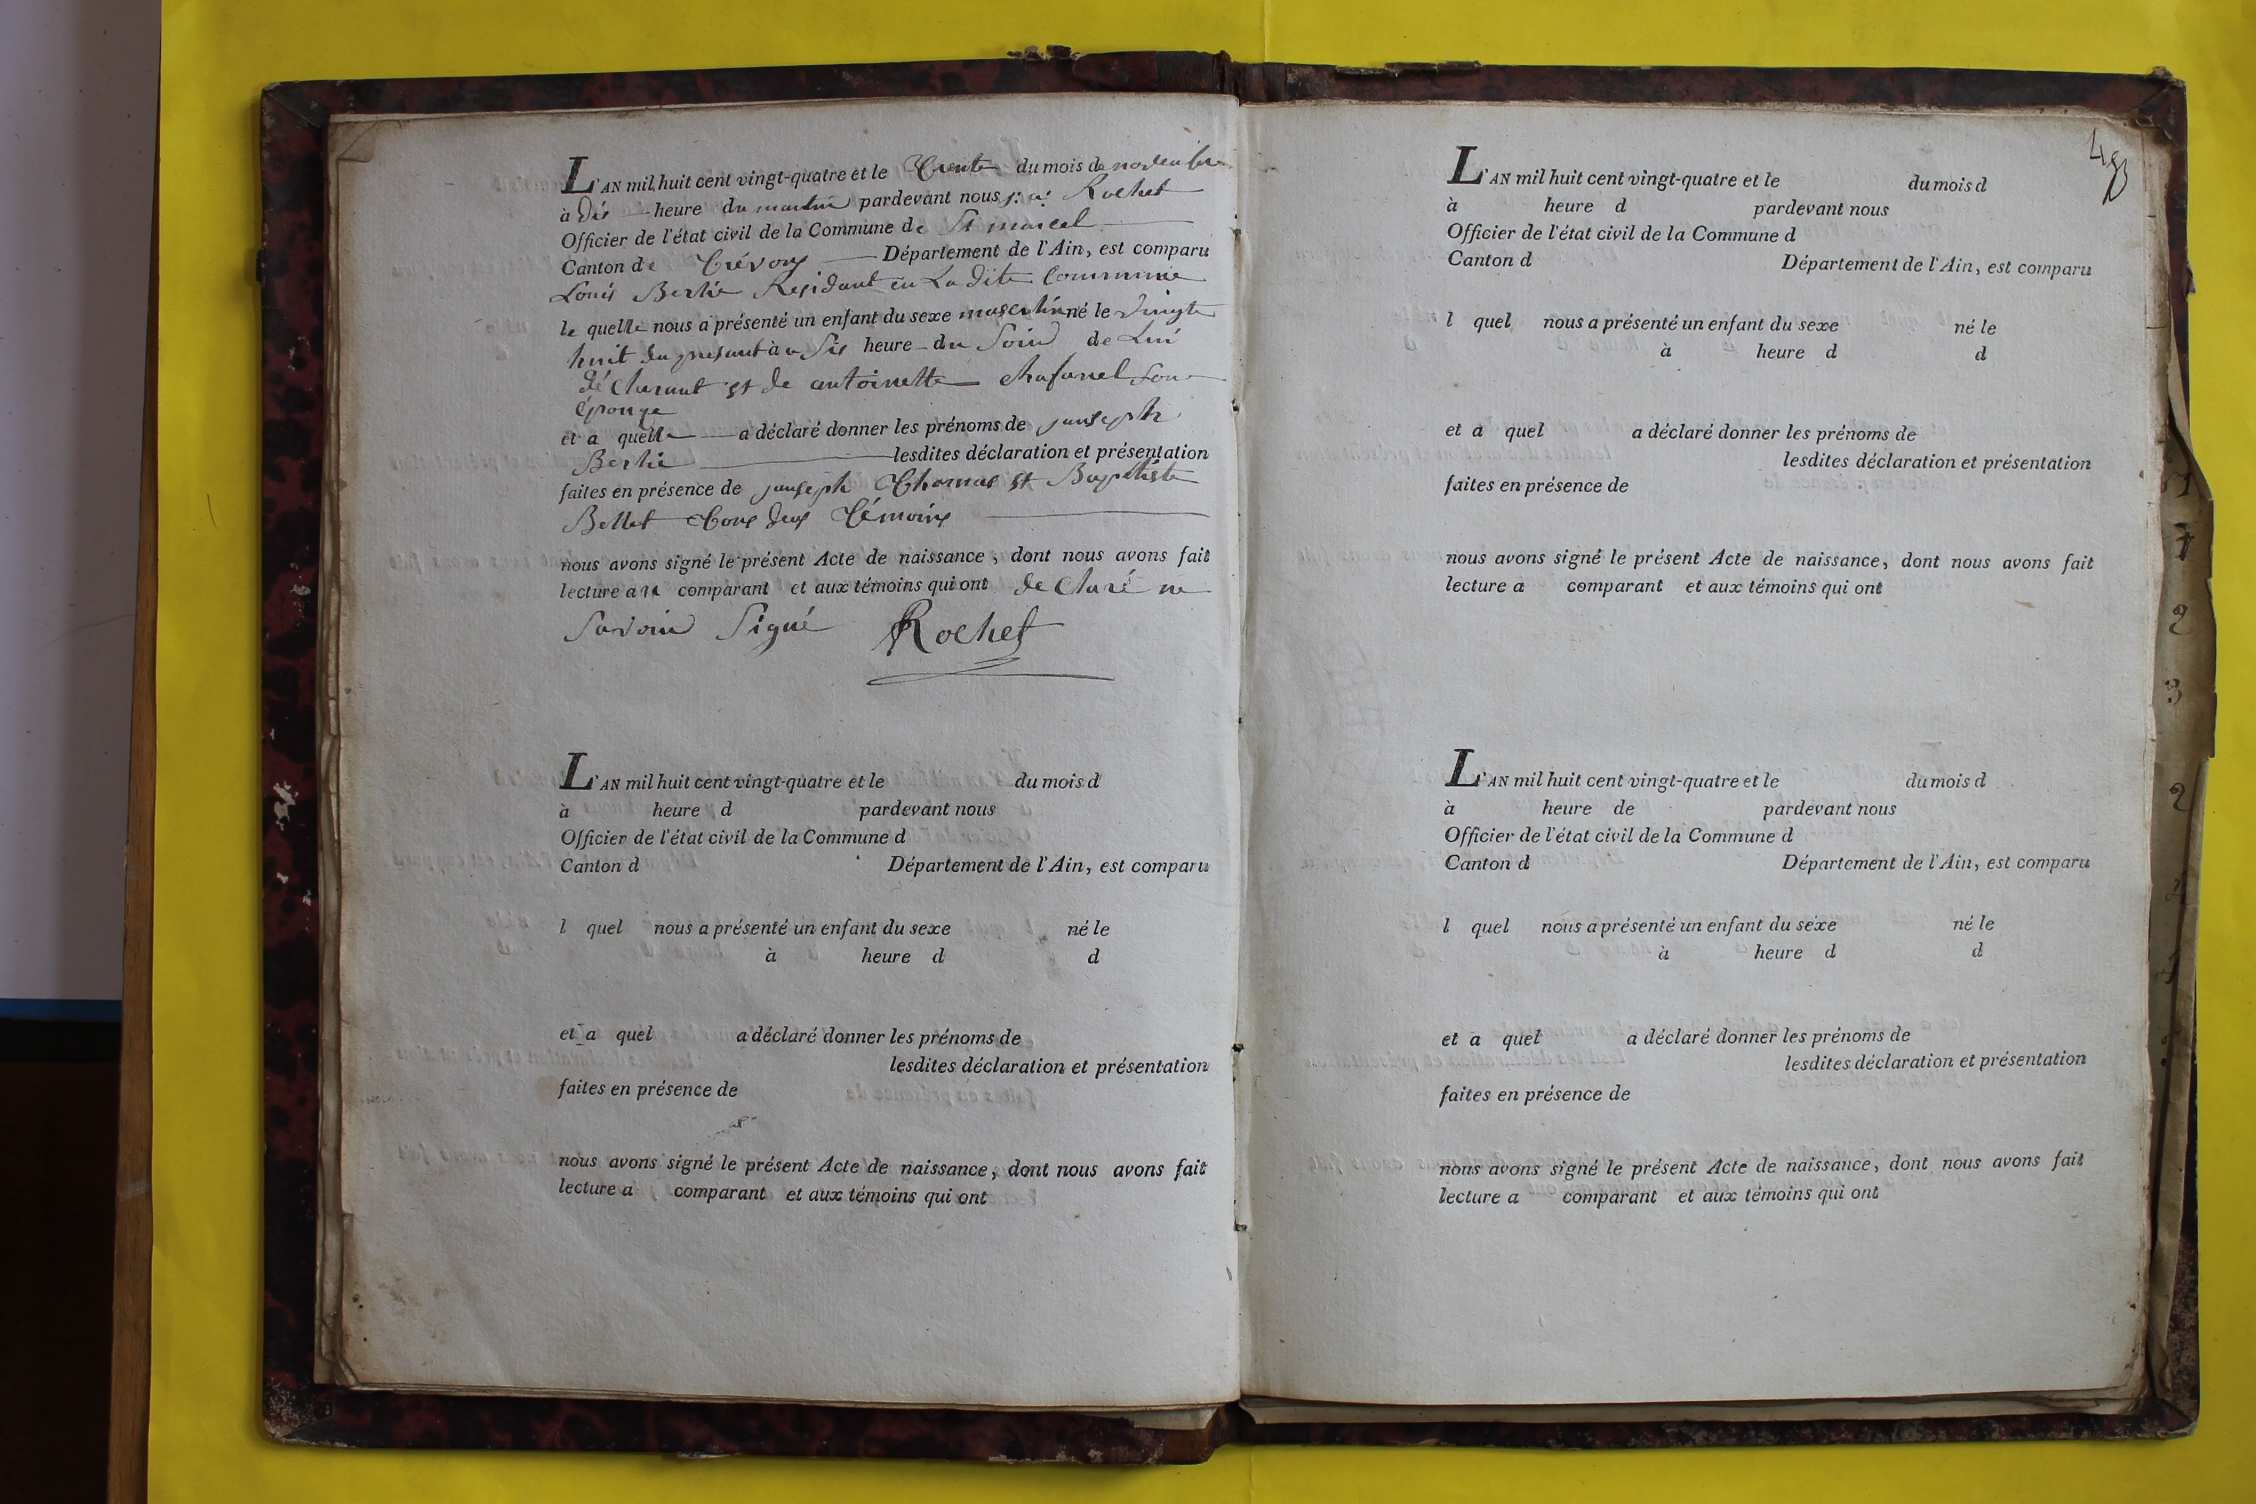 L'AN mil huit cent vingt-quatre et le Trente du mois de novembre
à dis heure du mastin pardevant nous j: a: Rochet
Officier de l'état civil de la Commune de St marcel
Canton de Trévoux Département de l'Ain, est comparu
Louis Bertié Residant en La dite Commune
le quelle nous a présenté un enfant du sexe masculin né le vingte
huit du présant à sis heure du Soird de Lui
déClarant et de antoinette chafanel Son
épouse
et a quelle a déclaré donner les prénoms de jauseph
Bertié lesdites déclaration et présentation
faites en présence de jauseph Thomas et Baptiste
Bellet Tous deux Témoins
nous avons signé le présent Acte de naissance, dont nous avons fait
lecture au comparant et aux témoins qui ont deClaré ne
Savoir Signé Rochet
L'AN mil huit cent vingt-quatre et le du mois d
à heure d pardevant nous
Officier de l'état civil de la Commune d
Canton d Département de l'Ain, est comparu
l quel nous a présenté un enfant du sexe né le
à heure d d
et a quel a déclaré donner les prénoms de
lesdites déclaration et présentation
faites en présence de
nous avons signé le présent Acte de naissance, dont nous avons fait
lecture a comparant et aux témoins qui ont
48
L'AN mil huit cent vingt-quatre et le du mois d
à heure d pardevant nous
Officier de l'état civil de la Commune d
Canton d Département de l'Ain, est comparu
l quel nous a présenté un enfant du sexe né le
à heure d d
et a quel a déclaré donner les prénoms de
lesdites déclaration et présentation
faites en présence de
nous avons signé le présent Acte de naissance, dont nous avons fait
lecture a comparant et aux témoins qui ont
L'AN mil huit cent vingt-quatre et le du mois d
à heure de pardevant nous
Officier de l'état civil de la Commune d
Canton d Département de l'Ain, est comparu
l quel nous a présenté un enfant du sexe né le
à heure d d
et a quel a déclaré donner les prénoms de
lesdites déclaration et présentation
faites en présence de
nous avons signé le présent Acte de naissance, dont nous avons fait
lecture a comparant et aux témoins qui ont
2
3
2